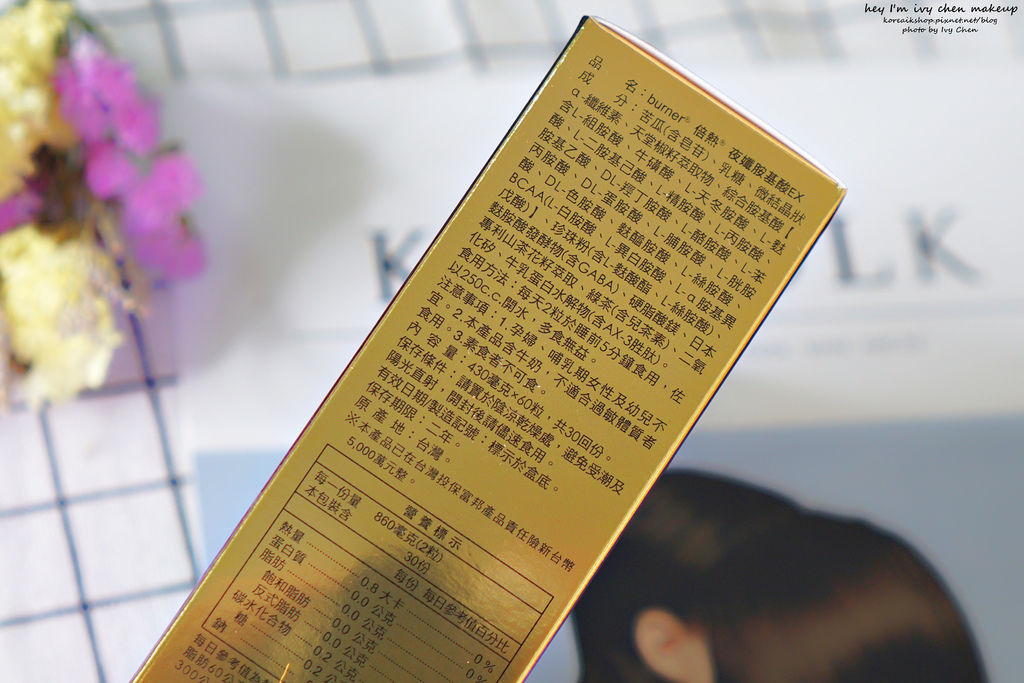 hey I'm ivy chen makeup
koreaikshop.pixnet.net/blog
photo by Ivy Chen
品　　名：burner® 倍熱® 夜孅胺基酸EX
成　　分：苦瓜(含皂苷)、乳糖、微結晶狀
α-纖維素、天堂椒籽萃取物、綜合胺基酸【
含L-組胺酸、牛磺酸、L-天冬胺酸、L-麩
酸、L-二胺基己酸、L-精胺酸、L-丙胺酸、
胺基乙酸、DL-羥丁胺酸、L-酪胺酸、L-苯
丙胺酸、DL-蛋胺酸、L-脯胺酸、L-胱胺
酸、DL-色胺酸、麩醯胺酸、L-絲胺酸、
BCAA(L-白胺酸、L-異白胺酸、L-α胺基異
戊酸)】、珍珠粉(含L-麩胺酸、L-絲胺酸)、
麩胺酸發酵物(含GABA)、硬脂酸鎂、日本
專利山茶花籽萃取、綠茶(含兒茶素)、二氧
化矽、牛乳蛋白水解物(含AX-3胜肽)。
食用方法：每天2粒於睡前5分鐘食用，佐
以250C.C.開水，多食無益。
注意事項：1.孕婦、哺乳期女性及幼兒不
宜。2.本產品含牛奶，不適合過敏體質者
食用。3.素食者不可食。
內 容 量：430毫克×60粒，共30回份。
保存條件：請置於陰涼乾燥處，避免受潮及
陽光直射，開封後請儘速食用。
有效日期/製造記號：標示於盒底。
保存期限：二年。
原 產 地：台灣。
※本產品已在台灣投保富邦產品責任險新台幣
5,000萬元整。
營養標示
每一份量　860毫克(2粒)
本包裝含　30份
每份　每日參考值百分比
熱量　0.8 大卡　0 %
蛋白質　0.0 公克　0 %
脂肪　0.0 公克
飽和脂肪　0.0 公克
反式脂肪　0.0 公克
碳水化合物　0.2 公克
糖　0.2 公克
鈉
每日參考值
脂肪60公
300公
K
LK